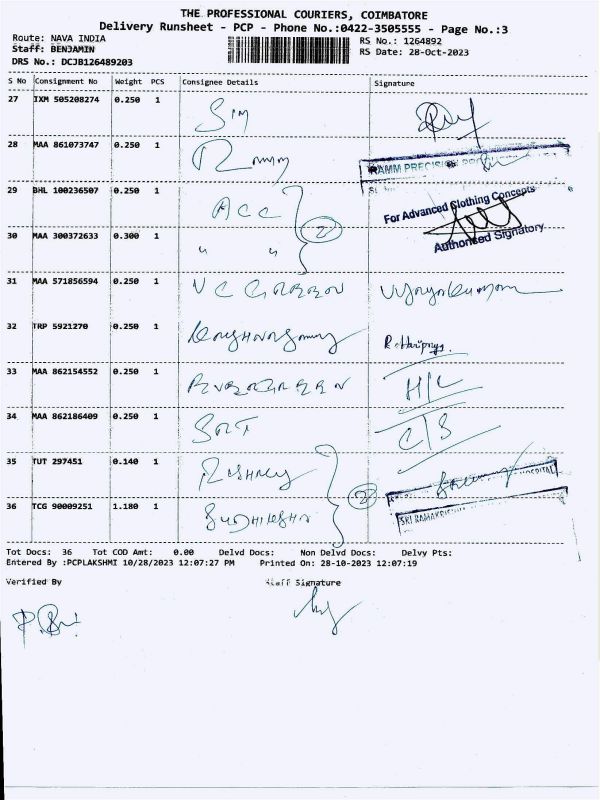 THE PROFESSIONAL COURIERS, COIMBATORE
Delivery Runsheet - PCP - Phone No.:0422-3505555 - Page No.:3
Route: NAVA INDIA RS No.: 1264892
Staff: BENJAMIN RS Date: 28-Oct-2023
DRS No.: DCJB126489203
S No Consignment No Weight PCS Consignee Details Signature
27 IXM 505208274 0.250 1 Sim
28 MAA 861073747 0.250 1
RAMM PRECISION
29 BHL 100236507 0.250 1 ACC
For Advanced Clothing Concepts
30 MAA 300372633 0.300 1 " " 2
Authorised Signatory
31 MAA 571856594 0.250 1
32 TRP 5921270 0.250 1 R. Haripriya
33 MAA 862154552 0.250 1 H/C
34 MAA 862186409 0.250 1 C/S
35 TUT 297451 0.140 1
HOSPITAL
36 TCG 90009251 1.180 1 2
SRI RAMAKRISHNA
Tot Docs: 36 Tot COD Amt: 0.00 Delvd Docs: Non Delvd Docs: Delvy Pts:
Entered By :PCPLAKSHMI 10/28/2023 12:07:27 PM Printed On: 28-10-2023 12:07:19
Verified By Staff Signature